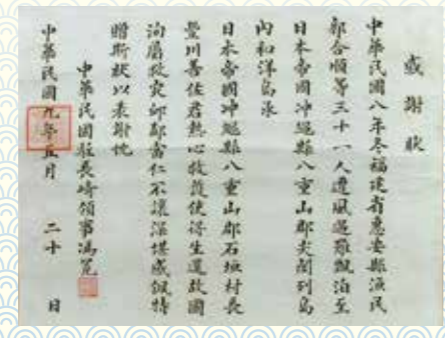 感謝狀
中華民國八年冬福建省惠安縣漁民
郭合順等三十一人遭風遇難飄泊至
日本帝國沖繩縣八重山郡尖閣列島
內和洋島承
日本帝國沖繩縣八重山郡石垣村長
豐川善佐君熱心救護使得生還故國
洵屬救災卹鄰當仁不讓深堪感佩特
贈斯狀以表謝忱
中華民國駐長崎領事馮冕
中華民國九年五月二十日